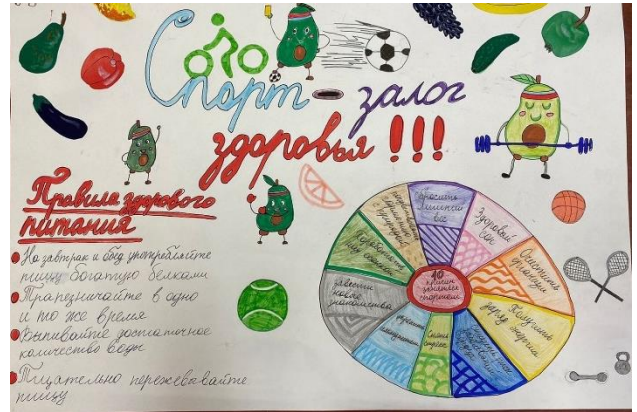 Спорт - залог
здоровья !!!
Правила здорового
питания
На завтрак и обед употребляйте
пищу богатую белками
Трапезничайте в одно
и то же время
Выпивайте достаточное
количество воды
Тщательно пережевывайте
пищу
10
причин
заняться
спортом
Сбросить
лишний
вес
Здоровый
сон
Очистить
организм
Получить
заряд энергии
Снять
стресс
Укрепить
завести
новые
знакомства